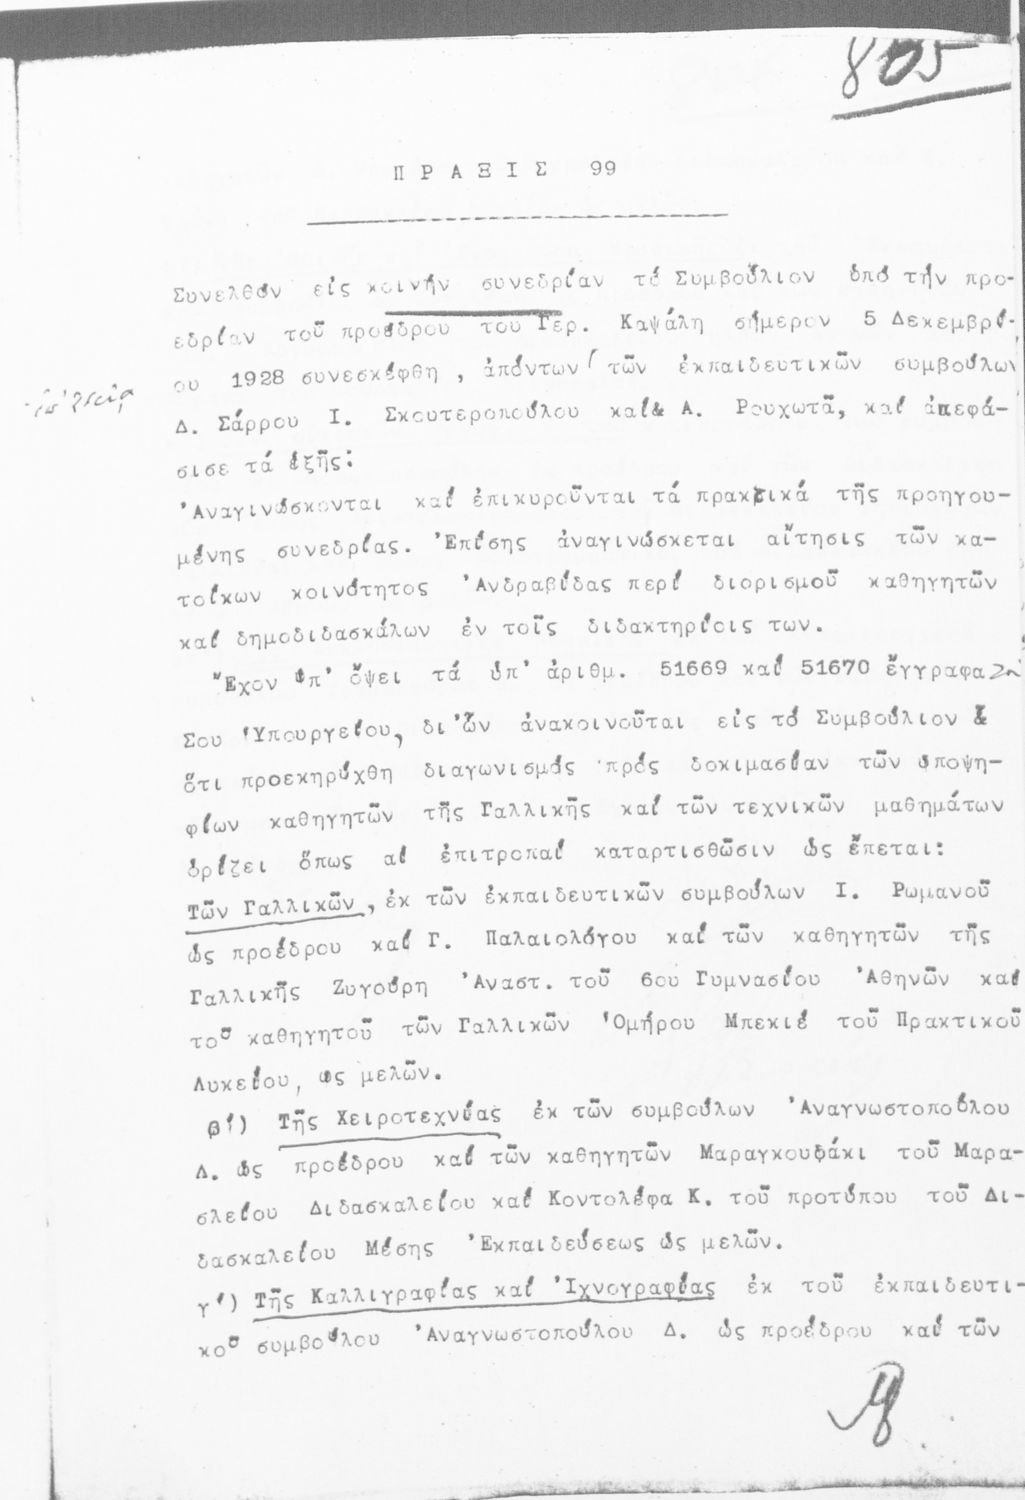 805
ΠΡΑΞΙΣ 99
Συνελθόν εἰς κοινήν συνεδρίαν τό Συμβούλιον ὑπό τήν προ-
εδρίαν τοῦ προέδρου του Γερ. Καψάλη σήμερον 5 Δεκεμβρί-
ου 1928 συνεσκέφθη, ἀπόντων τῶν ἐκπαιδευτικῶν συμβούλων
Δ. Σάρρου Ι. Σκουτεροπούλου καί& Α. Ρουχωτᾶ, καί ἀπεφά-
σισε τά ἑξῆς:
Ἀναγινώσκονται καί ἐπικυροῦνται τά πρακτικά τῆς προηγου-
μένης συνεδρίας. Ἐπίσης ἀναγινώσκεται αἴτησις τῶν κα-
τοίκων κοινότητος Ἀνδραβίδας περί διορισμοῦ καθηγητῶν
καί δημοδιδασκάλων ἐν τοῖς διδακτηρίοις των.
Ἔχον ὑπ' ὄψει τά ὑπ' ἀριθμ. 51669 καί 51670 ἔγγραφα
Σου Ὑπουργείου, δι' ὧν ἀνακοινοῦται εἰς τό Συμβούλιον &
ὅτι προεκηρύχθη διαγωνισμός πρός δοκιμασίαν τῶν ὑποψη-
φίων καθηγητῶν τῆς Γαλλικῆς καί τῶν τεχνικῶν μαθημάτων
ὁρίζει ὅπως αἱ ἐπιτροπαί καταρτισθῶσιν ὡς ἕπεται:
Τῶν Γαλλικῶν, ἐκ τῶν ἐκπαιδευτικῶν συμβούλων Ι. Ρωμανοῦ
ὡς προέδρου καί Γ. Παλαιολόγου καί τῶν καθηγητῶν τῆς
Γαλλικῆς Ζυγούρη Ἀναστ. τοῦ 6ου Γυμνασίου Ἀθηνῶν καί
τοῦ καθηγητοῦ τῶν Γαλλικῶν Ὁμήρου Μπεκιέ τοῦ Πρακτικοῦ
Λυκείου, ὡς μελῶν.
β') Τῆς Χειροτεχνίας ἐκ τῶν συμβούλων Ἀναγνωστοπούλου
Δ. ὡς προέδρου καί τῶν καθηγητῶν Μαραγκουδάκι τοῦ Μαρα-
σλείου Διδασκαλείου καί Κοντολέφα Κ. τοῦ προτύπου τοῦ Δι-
δασκαλείου Μέσης Ἐκπαιδεύσεως ὡς μελῶν.
γ') Τῆς Καλλιγραφίας καί Ἰχνογραφίας ἐκ τοῦ ἐκπαιδευτι-
κοῦ συμβούλου Ἀναγνωστοπούλου Δ. ὡς προέδρου καί τῶν